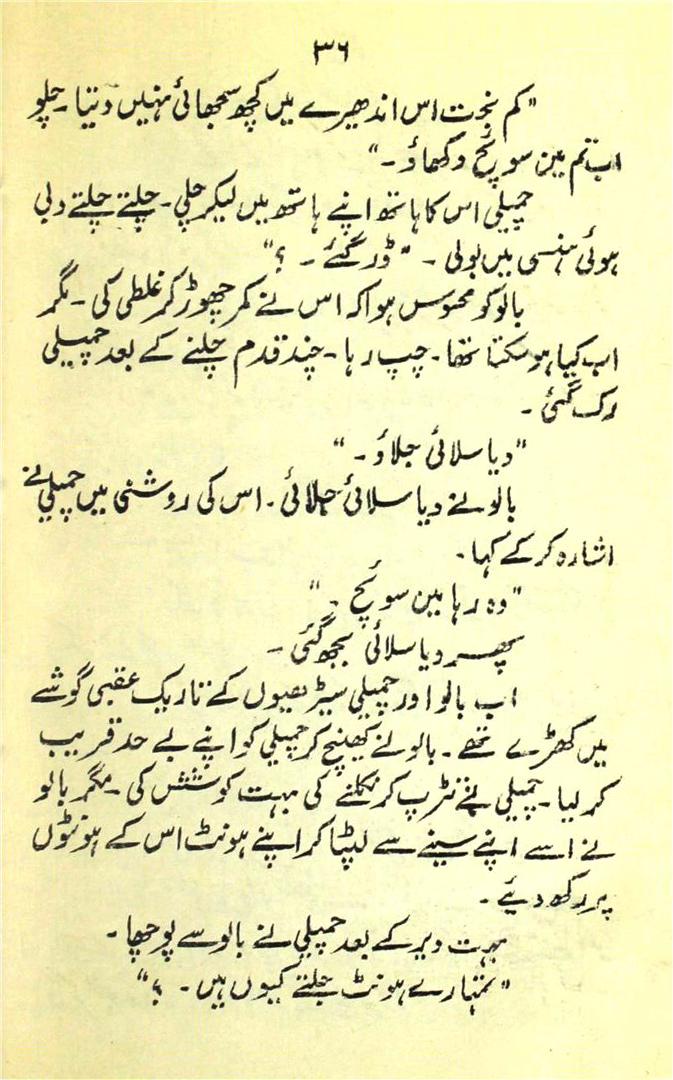 ۳۶
"کم بخت اس اندھیرے میں کچھ سجھائی نہیں دیتا۔ چلو
اب تم مین سوئچ دکھاؤ۔"
چمپلی اس کا ہاتھ اپنے ہاتھ میں لیکر چلی۔ چلتے چلتے دبی
ہوئی ہنسی میں بولی۔ "ڈر گئے۔؟"
بالو کو محسوس ہوا کہ اس نے کمر چھوڑ کر غلطی کی۔ مگر
اب کیا ہو سکتا تھا۔ چپ رہا۔ چند قدم چلنے کے بعد چمپلی
رک گئی۔
"دیا سلائی جلاؤ۔"
بالو نے دیا سلائی جلائی۔ اس کی روشنی میں چمپلی نے
اشارہ کر کے کہا۔
"وہ رہا مین سوئچ۔"
پھر دیا سلائی بجھ گئی۔
اب بالو اور چمپلی سیڑھیوں کے تاریک عقبی گوشے
میں کھڑے تھے۔ بالو نے کھینچ کر چمپلی کو اپنے بے حد قریب
کر لیا۔ چمپلی نے تڑپ کر نکلنے کی بہت کوشش کی۔ مگر بالو
نے اسے اپنے سینے سے لپٹا کر اپنے ہونٹ اس کے ہونٹوں
پر رکھ دیئے۔
بہت دیر کے بعد چمپلی نے بالو سے پوچھا۔
"تمہارے ہونٹ جلتے کیوں ہیں۔؟"